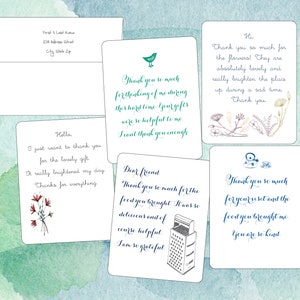 First & Last Name
1234 Address Street
City, State Zip
Thank you so much
for thinking of me during
this hard time. Your gifts
were so helpful to me.
I can't thank you enough.
Hi,
Thank you so much for
the flowers! They are
absolutely lovely and
really brighten the place
up during a sad time.
Thank you.
Hello,
I just want to thank you
for the lovely gift.
It really brightened my day.
Thanks for everything.
Dear friend,
Thank you so much for the
food you brought. It was so
delicious and of
course helpful.
I am so grateful.
Thank you so much
for your visit and the
food you brought me.
You are so kind.